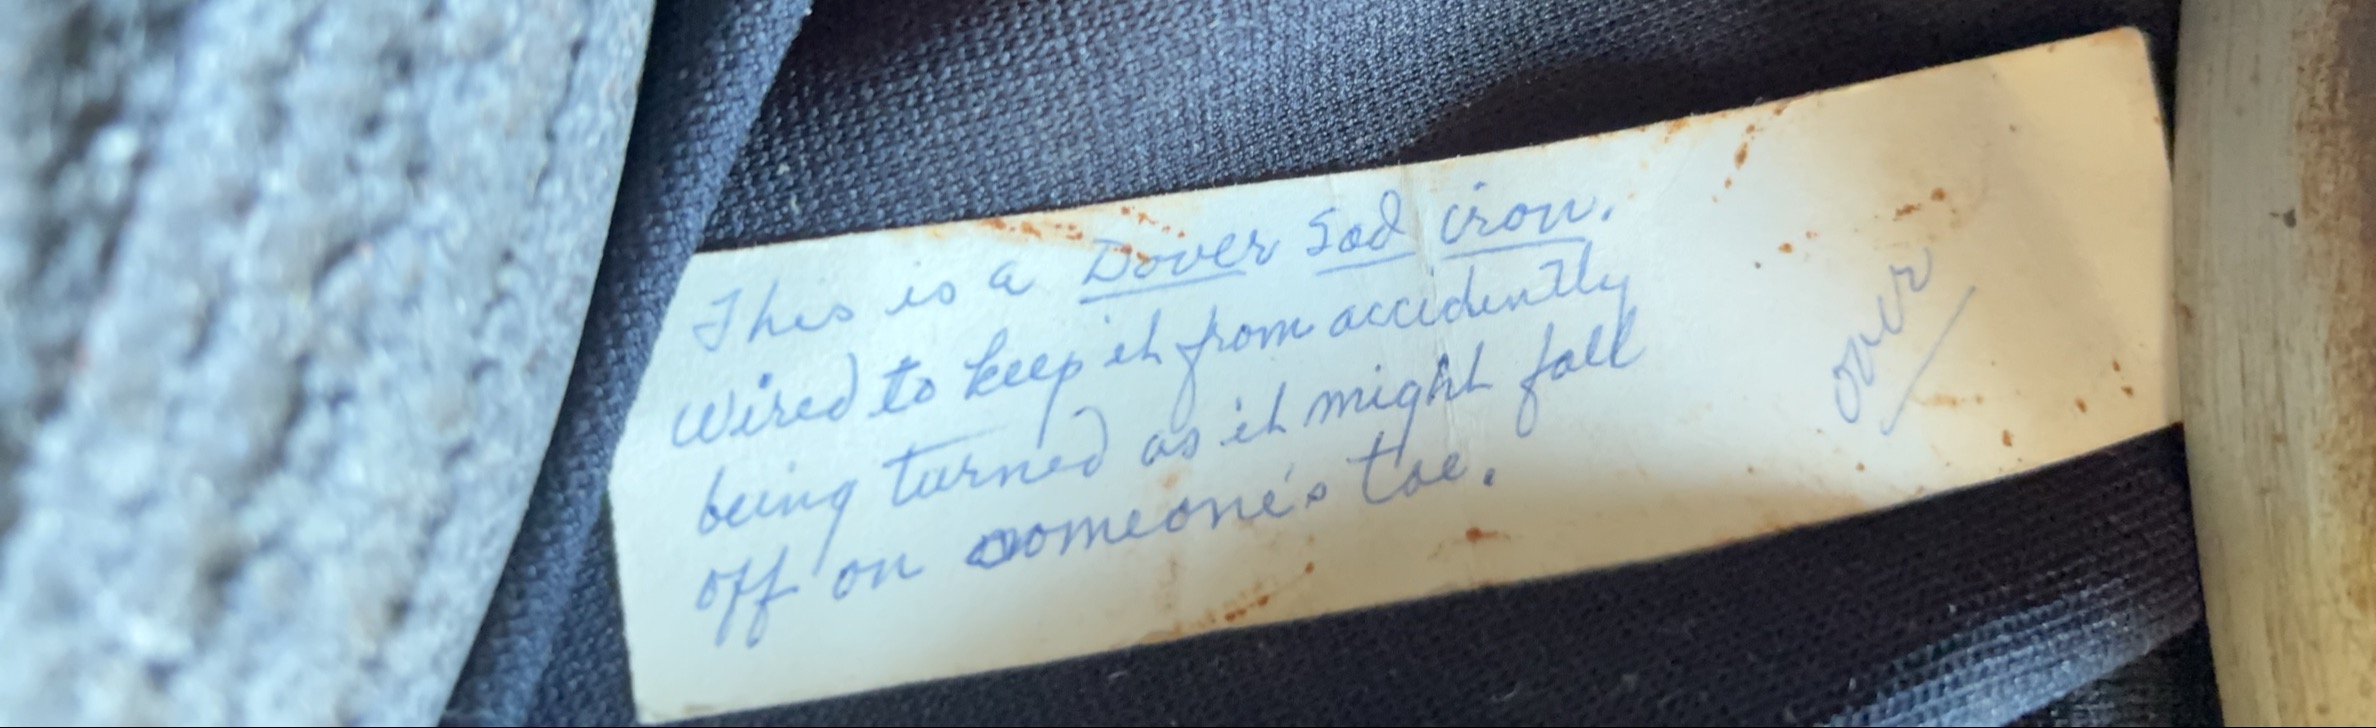 This is a Dover Sad iron.
Wired to keep it from accidently
being turned as it might fall
off on someone's toe.
over